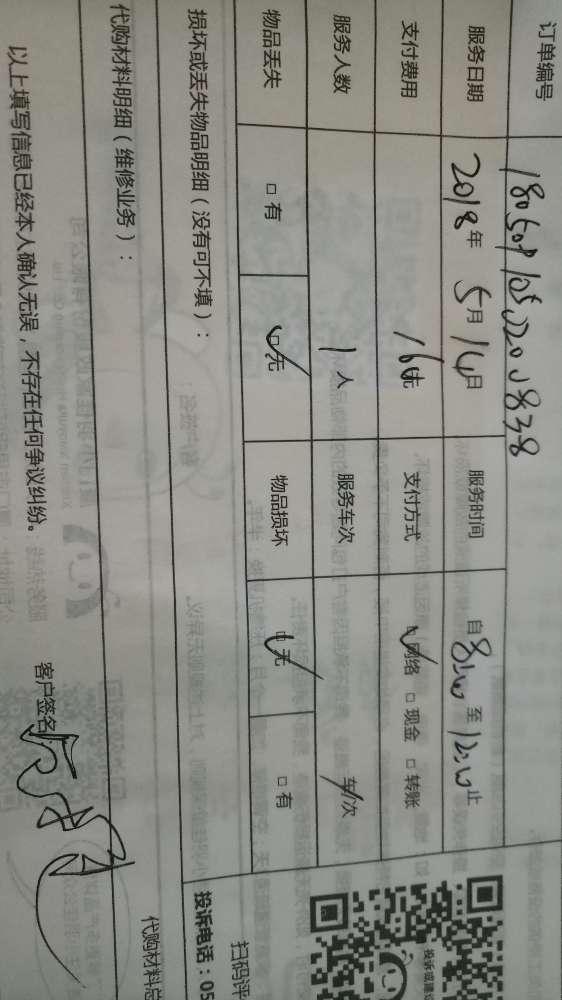 订单编号
服务日期 2018年 5月 14日 服务时间 自 8:00 至 12:00 止
支付费用 160元 支付方式 ☑网络 □现金 □转账
服务人数 1人 服务车次 车/次
物品丢失 □有 ☑无 物品损坏 ☑无 □有
损坏或丢失物品明细（没有可不填）：
代购材料明细（维修业务）：
以上填写信息已经本人确认无误，不存在任何争议纠纷。
客户签名
扫码评
投诉电话：05
代购材料总